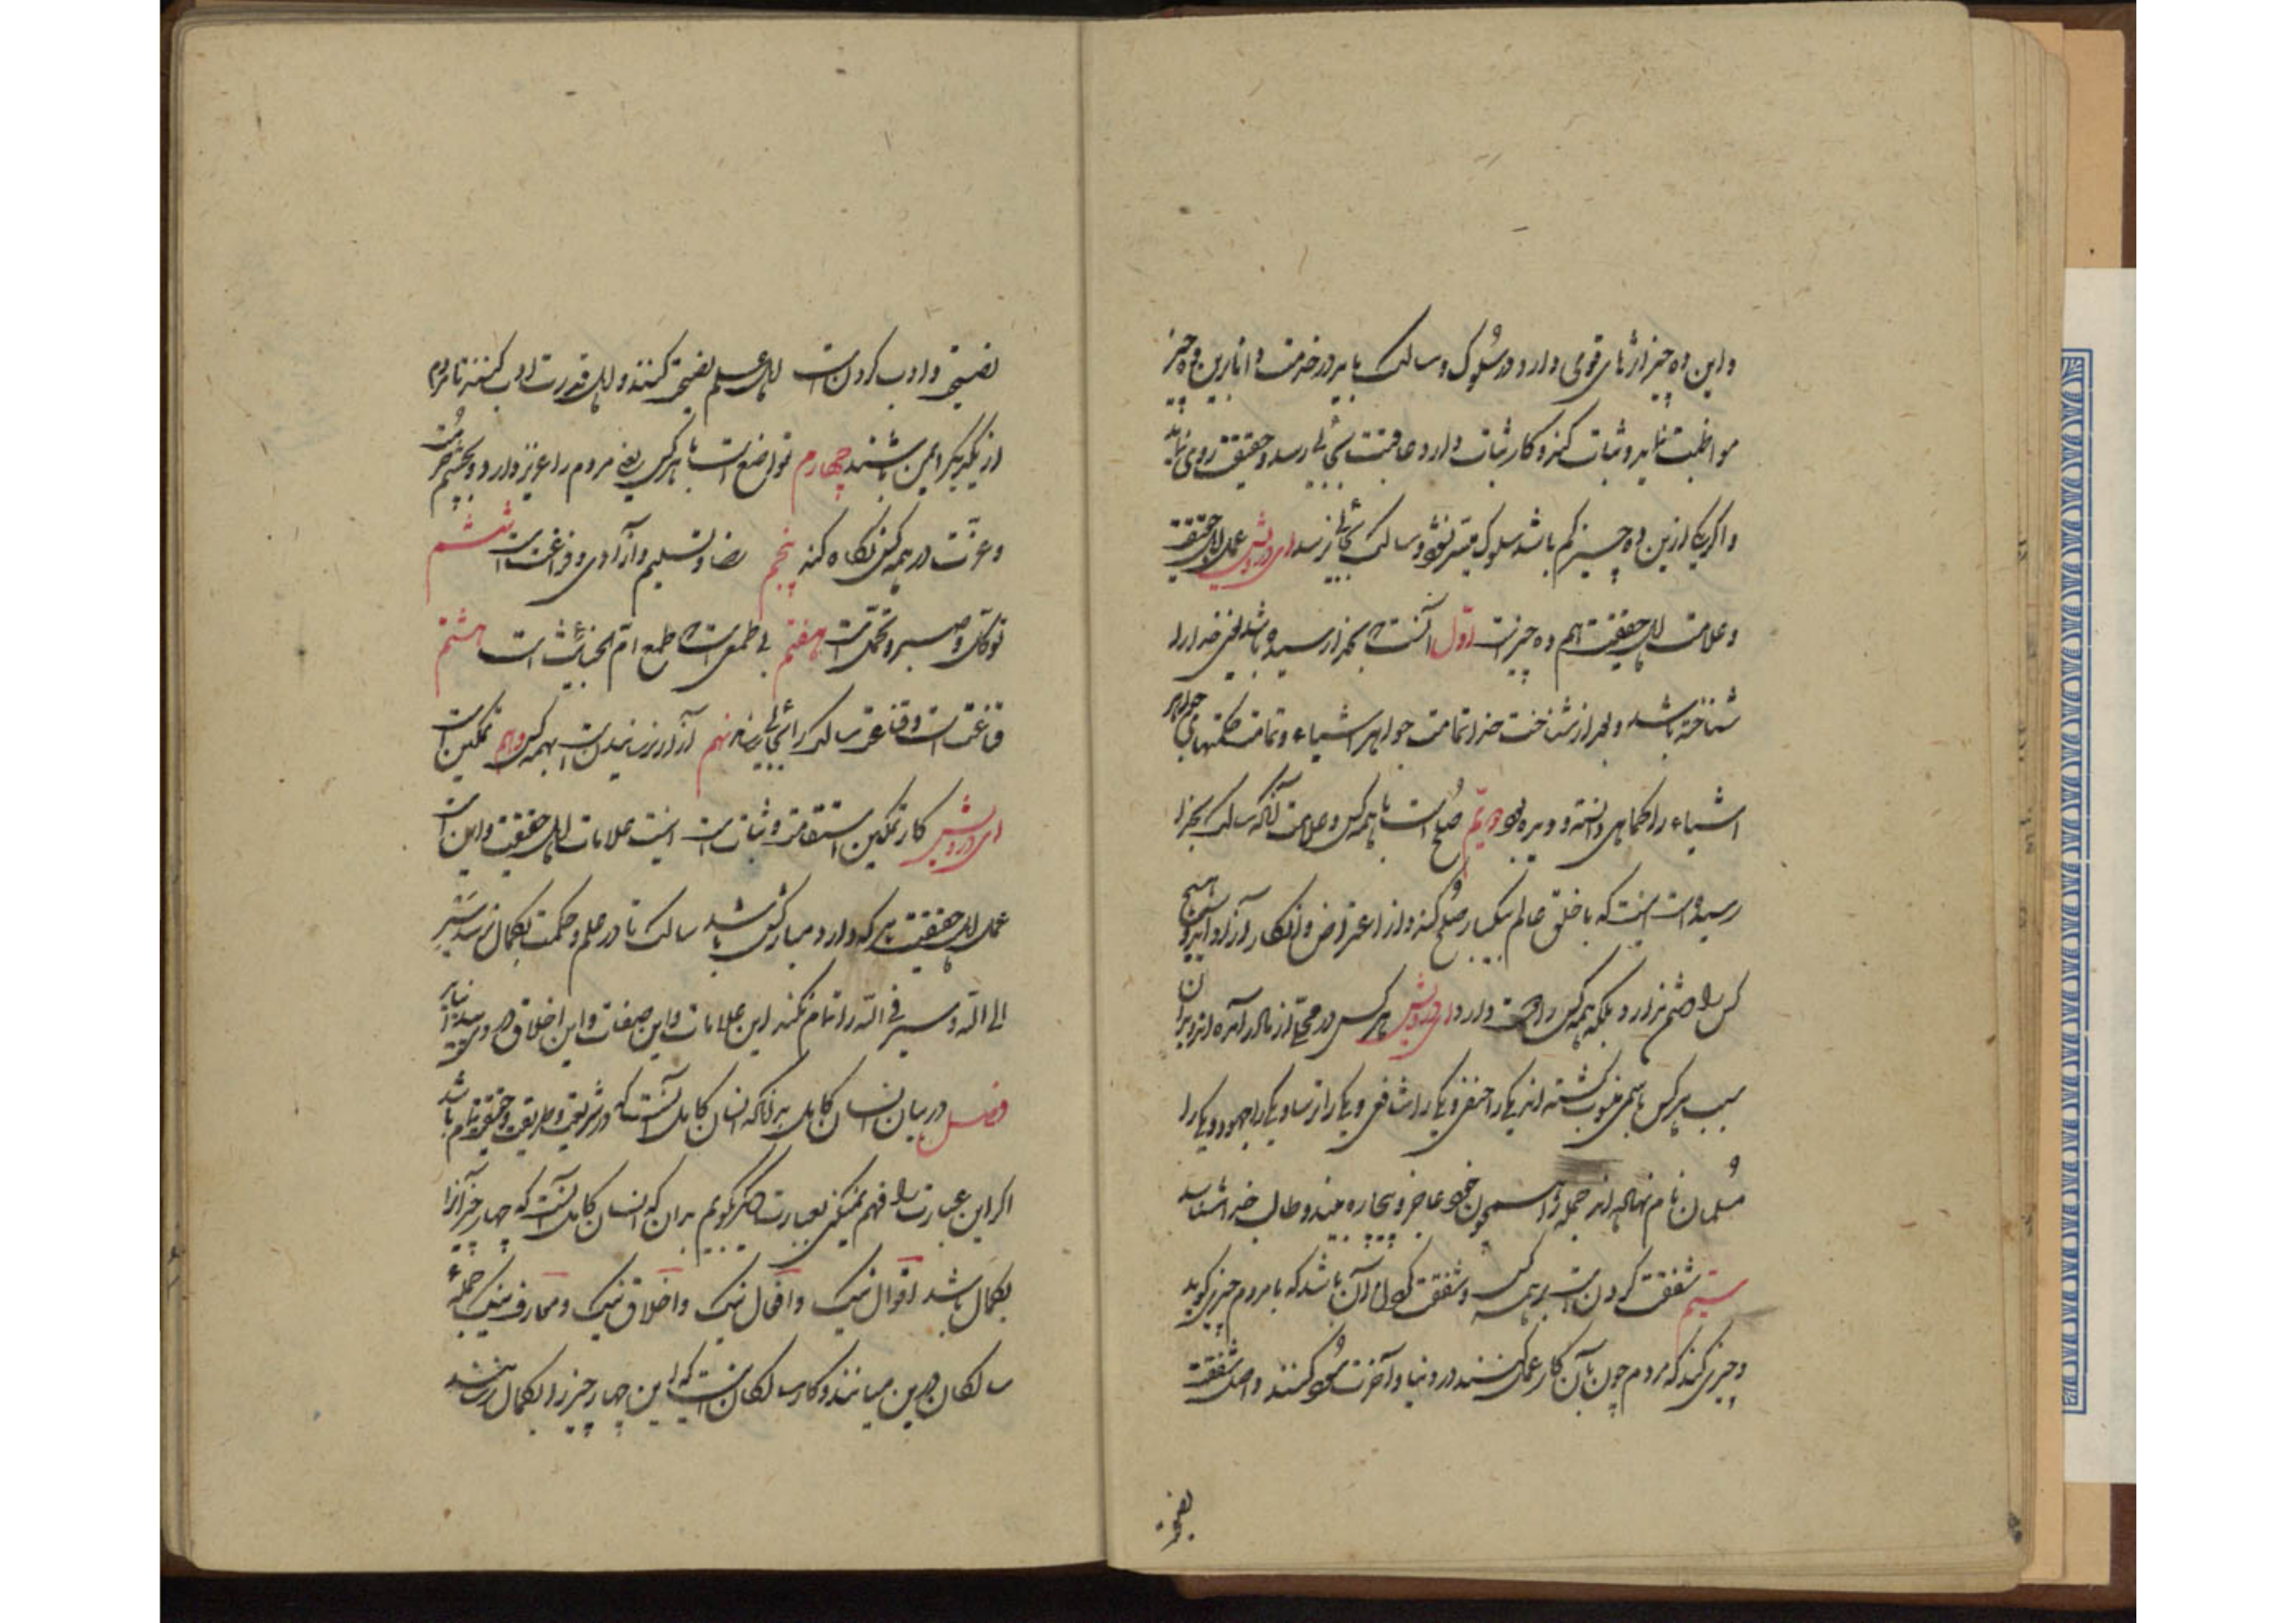 واین ده چیز اثرهای قوی دارد در سلوک و سالک باید در خدمت و اتا برین ده چیز
مواظبت نماید و ثبات کند و کار ثبات دارد و عاقبت بجائی رسد و حقیقت روی نماید
واگر یکی ازین ده چیز کم باشد سلوک میسر نشود و سالک بجائی نرسد ای درویش عمل اهل حقیقت
وعلامت اهل حقیقت هم ده چیزست اول آنست که بخدا رسیده باشد یعنی خدا را
شناخته باشد وبعد از شناخت خدا تمامت جواهر اشیاء و تمامت حکمتهای جواهر
اشیاء را کماهی دانسته و دیده بود دویم صلح است با همه کس وعلامت آنکه سالک بخدا
رسیده است اینست که با خلق عالم بیکبار صلح کند و از اعتراض و انکار آزاد آید و هیچ
کس را دشمن ندارد بلکه همه کس را دوست دارد ای درویش هر کس در محلی از مادر آمده اند و بدان
سبب هر کس باسمی منسوب گشته اند یکی را حنفی و یکی را شافعی و یکی را ترسا و یکی را جهود و یکی را
مسلمان نام نهاده اند جمله را همچون خود عاجز و بیچاره بیند و طالب خدا شناسد
سیم شفقت کردن است بر همه کس و شفقت کردن آن باشد که با مردم چیزی گوید
وچیزی کند که مردم چون بآن کار عمل کنند در دنیا و آخرت سود کنند و اصل شفقت
نصیحت
نصیحت وادب کردن است اهل علم نصیحت کنند و اهل قدرت ادب کنند تا مردم
از یکدیگر ایمن باشند چهارم تواضع است با هر کس یعنی مردم را عزیز دارد و بچشم حرمت
وعزت در همه کس نگاه کند پنجم رضا و تسلیم و آزادی و فراغت است ششم
توکل وصبر و تحمل است هفتم بی طمعی است که طمع ام الخبائث است هشتم
قناعت است و قناعت سالک را بجائی رساند نهم آزار نرسانیدن است بهمه کس دهم تمکین است
ای درویش کار تمکین و استقامت و ثبات است اینست علامات اهل حقیقت و این است
عمل اهل حقیقت هر که دارد مبارکش باشد سالک تا در علم و حکمت بکمال نرسد و سیر
الی الله و سیر فی الله را تمام نکند این علامات و این صفات و این اخلاق در وی پیدا نیاید
فصل در بیان انسان کامل بدانکه انسان کامل آنست که در شریعت و طریقت و حقیقت تمام باشد
اگر این عبارت را فهم نمیکنی بعبارت دیگر بگویم بدان که انسان کامل آنست که چهار چیز او را
بکمال باشد اقوال نیک و افعال نیک و اخلاق نیک و معارف نیک جمله
سالکان درین میانند و کار سالکان اینست که این چهار چیز را بکمال رسانند